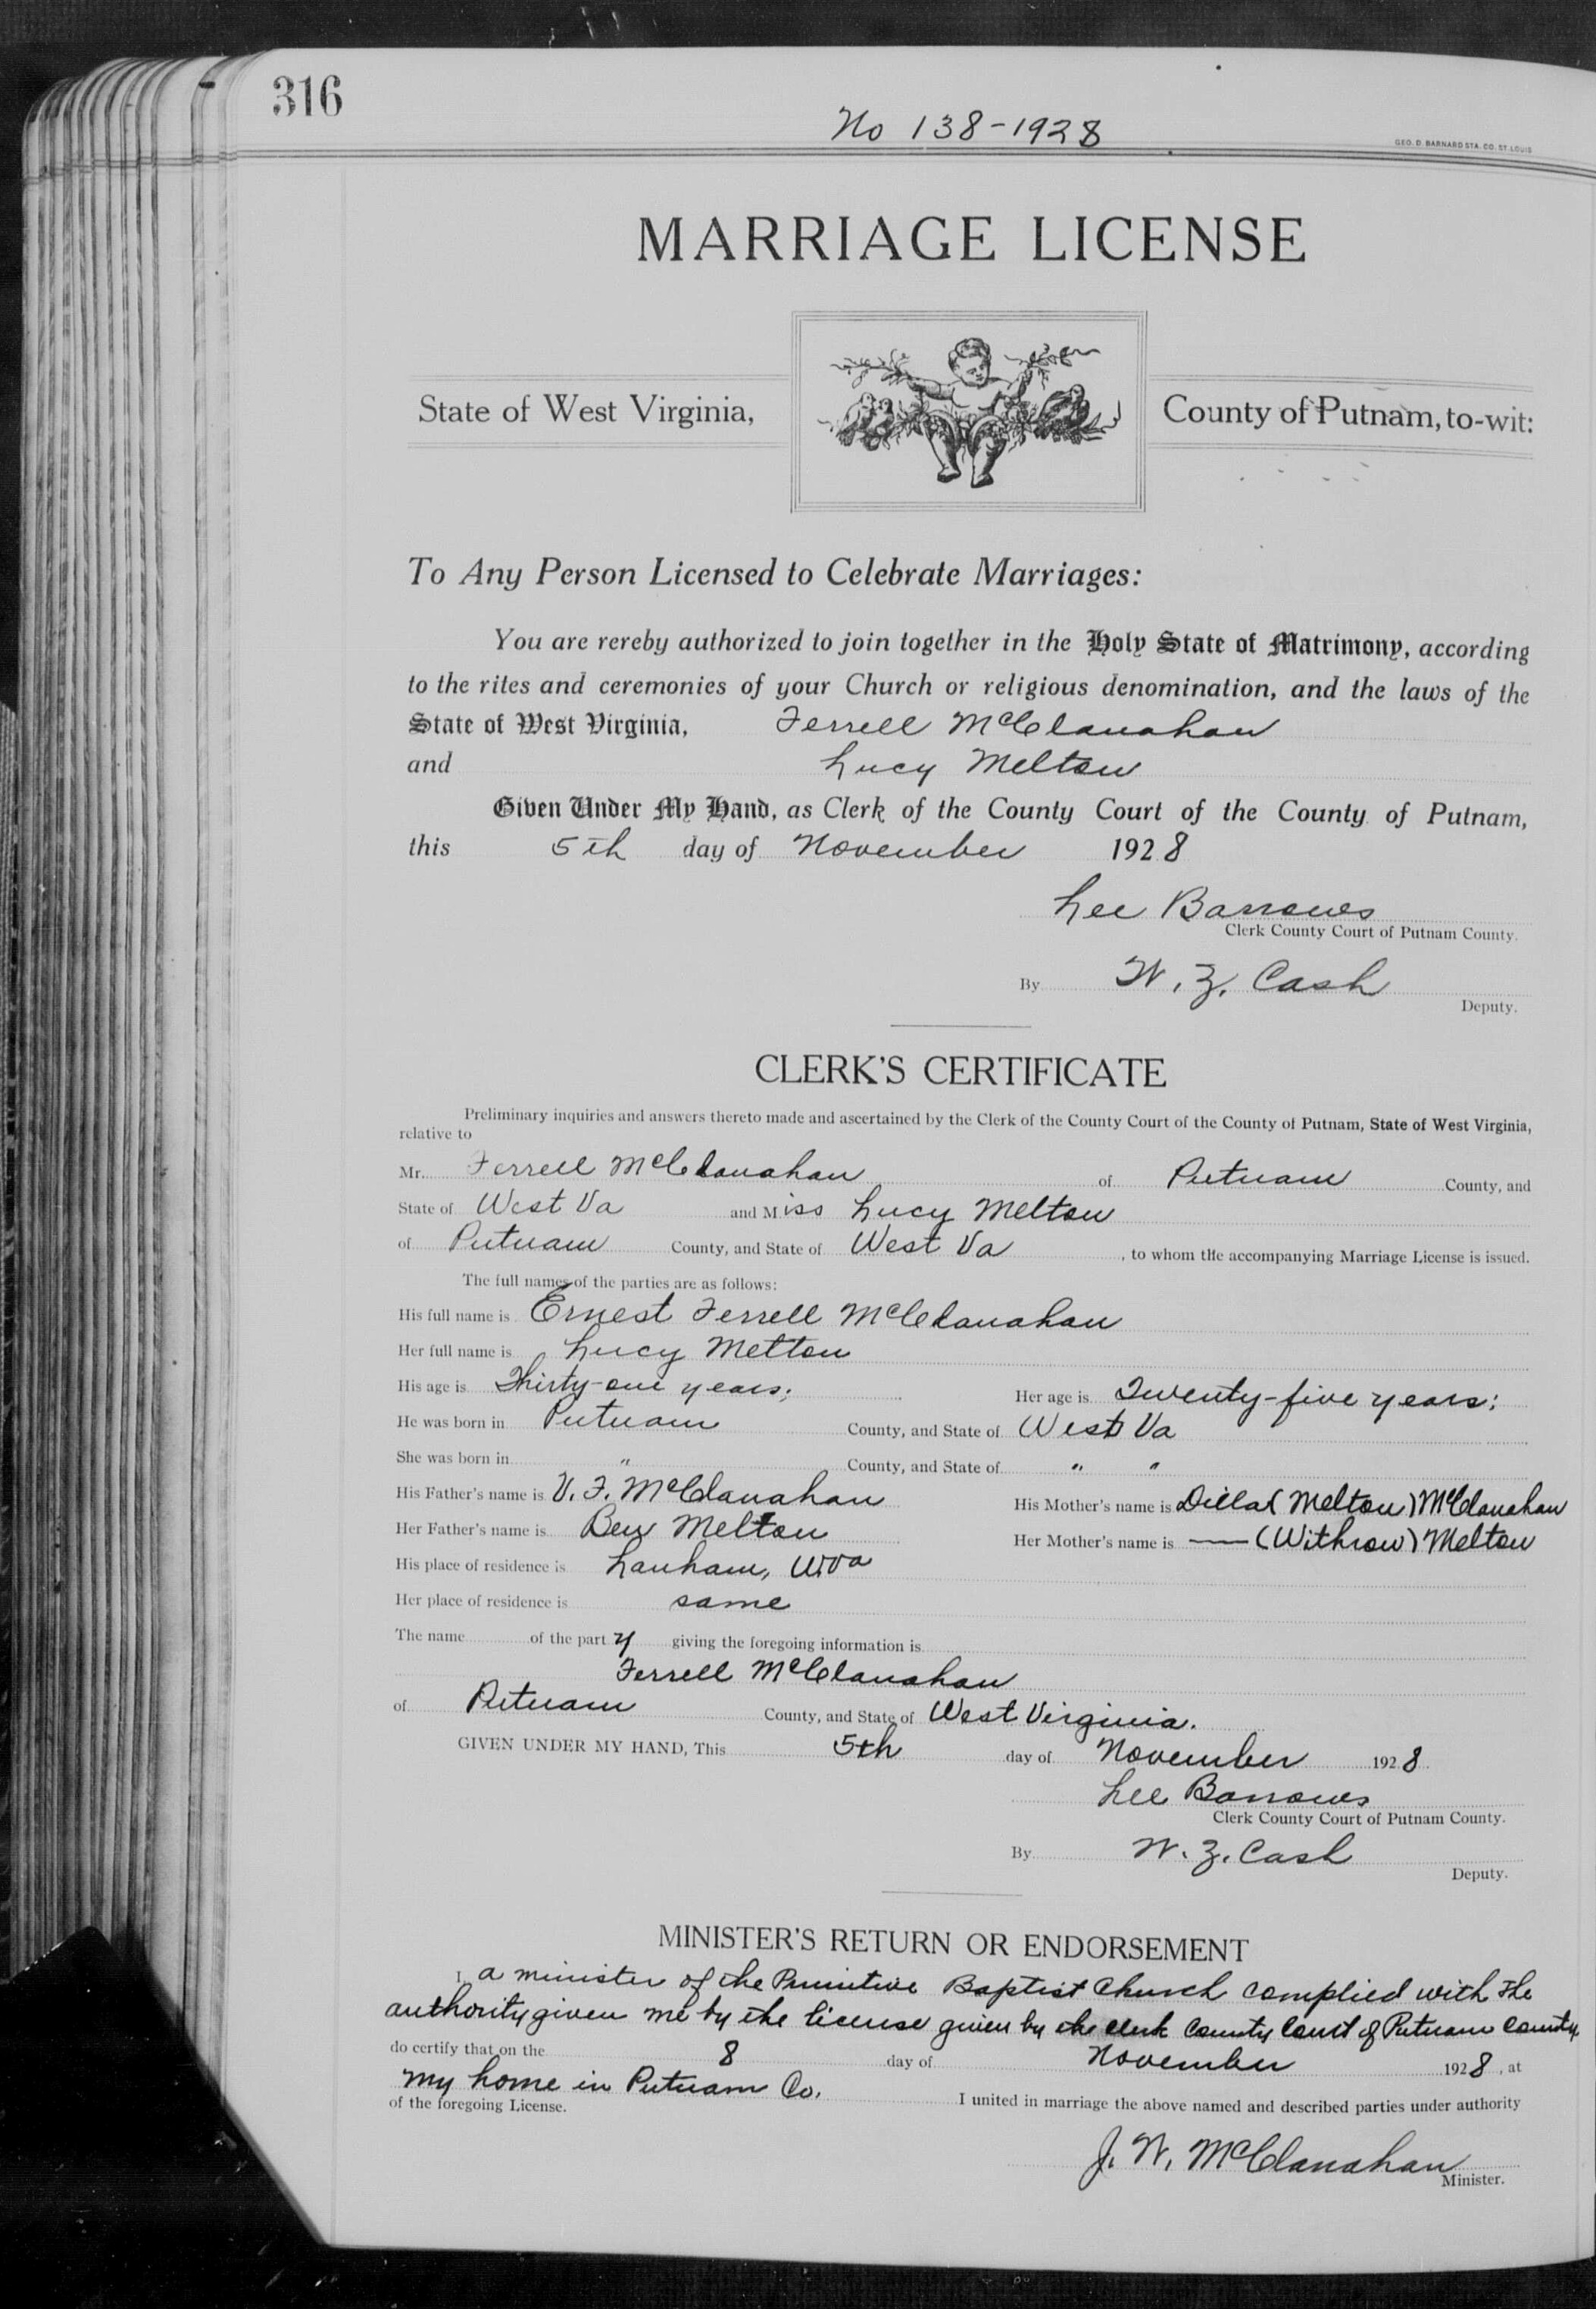 316
No 138-1928
GEO. D. BARNARD STA. CO. ST. LOUIS
MARRIAGE LICENSE
State of West Virginia, County of Putnam, to-wit:
To Any Person Licensed to Celebrate Marriages:
You are rereby authorized to join together in the Holy State of Matrimony, according
to the rites and ceremonies of your Church or religious denomination, and the laws of the
State of West Virginia, Ferrell McClanahan
and Lucy Melton
Given Under My Hand, as Clerk of the County Court of the County of Putnam,
this 5th day of November 1928
Lee Barrows
Clerk County Court of Putnam County.
By W. Z. Cash
Deputy.
CLERK'S CERTIFICATE
Preliminary inquiries and answers thereto made and ascertained by the Clerk of the County Court of the County of Putnam, State of West Virginia,
relative to
Mr. Ferrell McClanahan of Putnam County, and
State of West Va and Miss Lucy Melton
of Putnam County, and State of West Va , to whom the accompanying Marriage License is issued.
The full names of the parties are as follows:
His full name is Ernest Ferrell McClanahan
Her full name is Lucy Melton
His age is Thirty-one years; Her age is Twenty-five years;
He was born in Putnam County, and State of West Va
She was born in " County, and State of " "
His Father's name is V. F. McClanahan His Mother's name is Dilla (Melton) McClanahan
Her Father's name is Ben Melton Her Mother's name is — (Withrow) Melton
His place of residence is Lanham, W.Va
Her place of residence is same
The name of the party giving the foregoing information is
Ferrell McClanahan
of Putnam County, and State of West Virginia.
GIVEN UNDER MY HAND, This 5th day of November 1928.
Lee Barrows
Clerk County Court of Putnam County.
By W. Z. Cash
Deputy.
MINISTER'S RETURN OR ENDORSEMENT
I, a minister of the Primitive Baptist Church complied with the
authority given me by the license given by the clerk County Court of Putnam County
do certify that on the 8 day of November 1928, at
my home in Putnam Co. I united in marriage the above named and described parties under authority
of the foregoing License.
J. W. McClanahan
Minister.